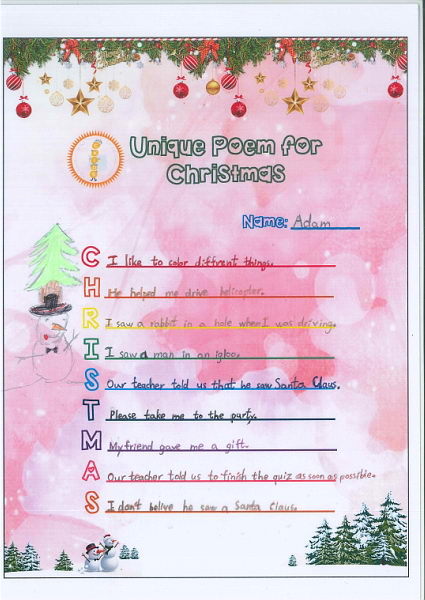 Unique Poem for
Christmas
Name: Adam
C I like to color diffrent things.
H He helped me drive helicopter.
R I saw a rabbit in a hole when I was driving.
I I saw a man in an igloo.
S Our teacher told us that he saw Santa Claus.
T Please take me to the party.
M My friend gave me a gift.
A Our teacher told us to finish the quiz as soon as possible.
S I don't belive he saw a Santa Claus.